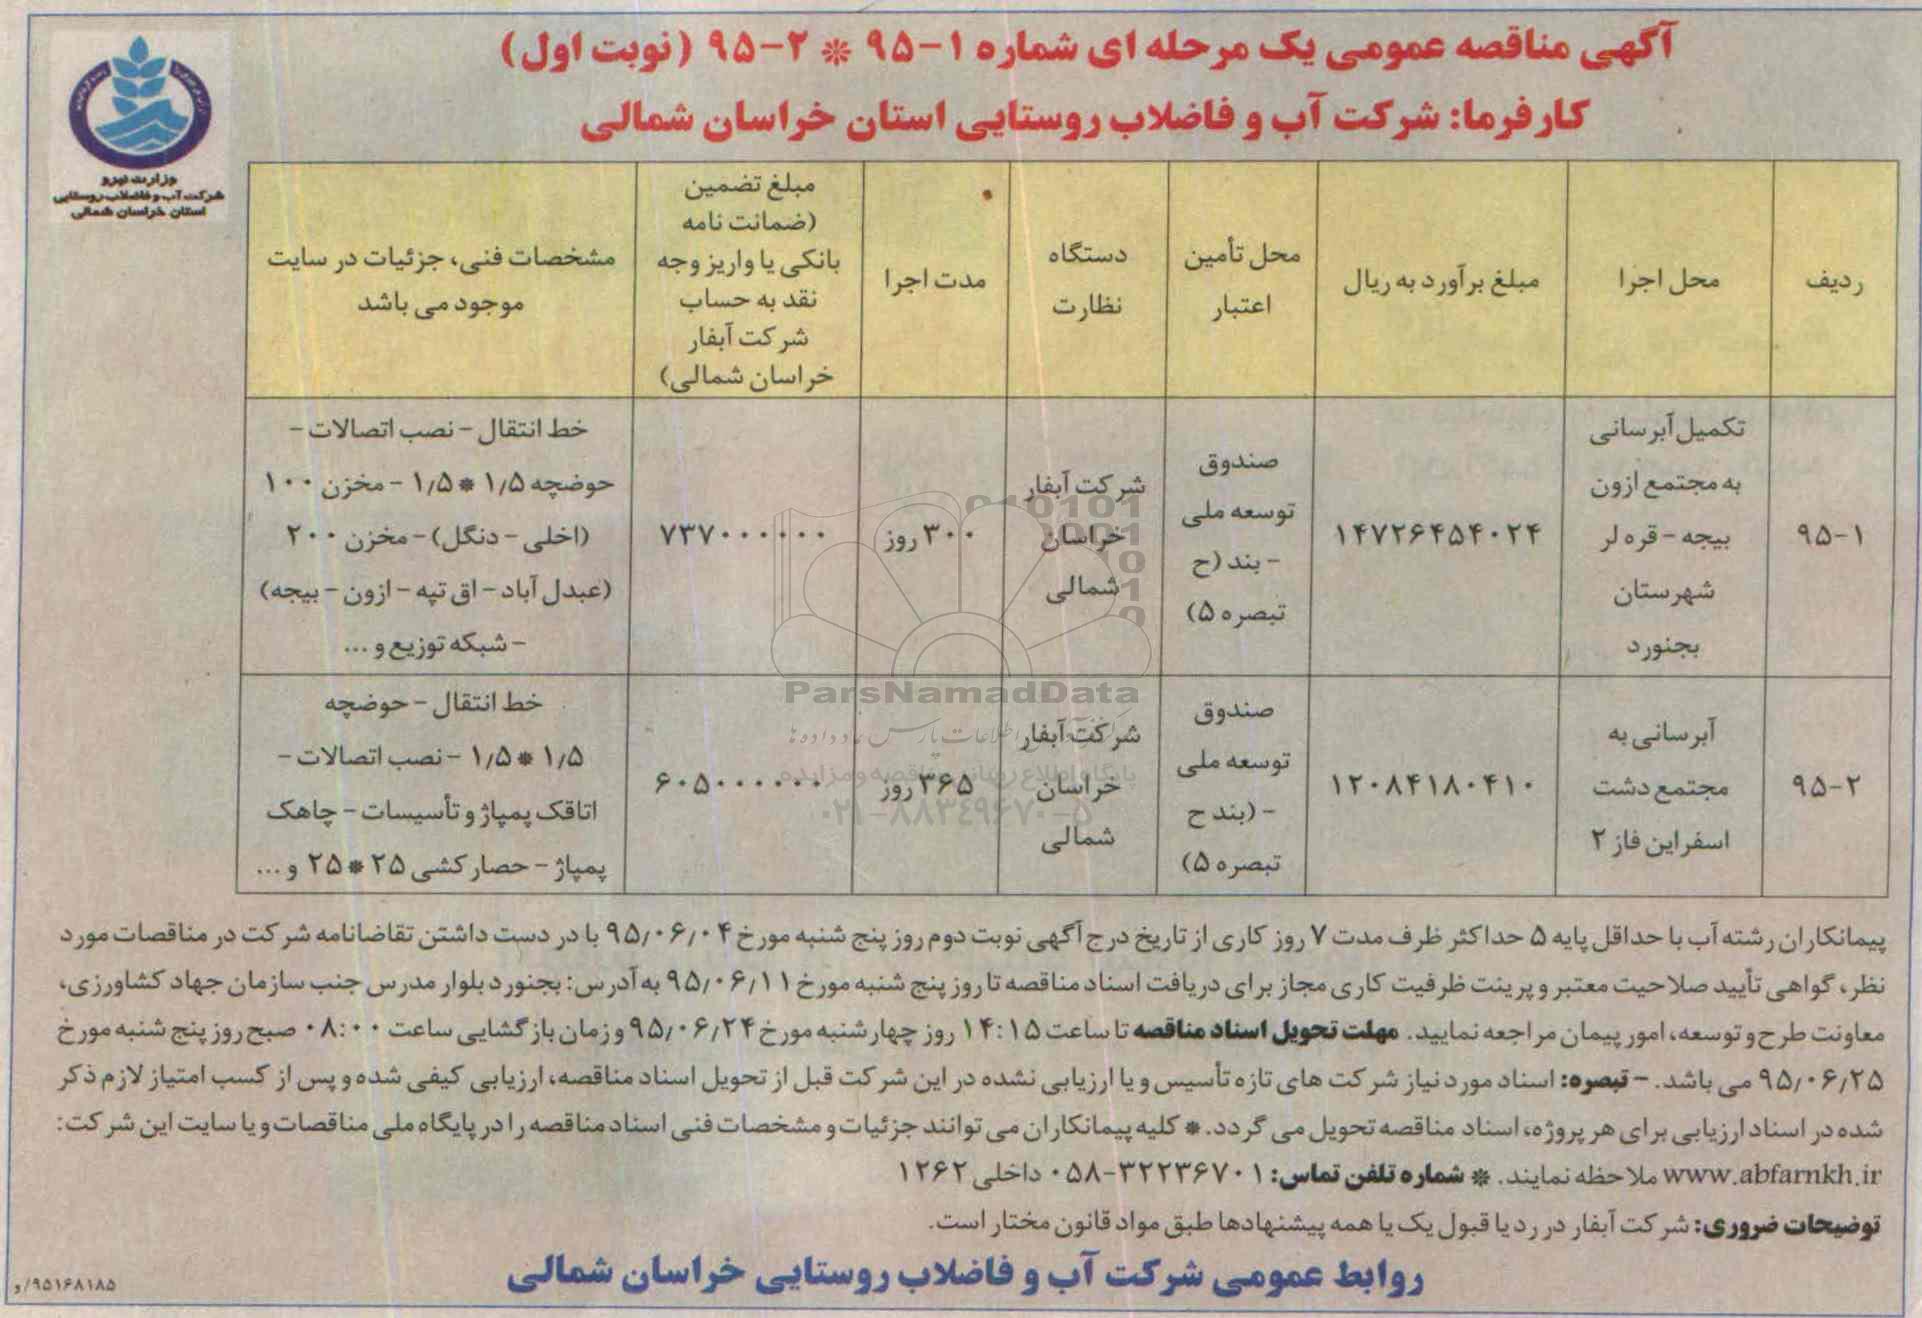 آگهی مناقصه عمومی یک مرحله ای شماره ۱-۹۵ * ۲-۹۵ (نوبت اول)
کارفرما: شرکت آب و فاضلاب روستایی استان خراسان شمالی
وزارت نیرو
شرکت آب و فاضلاب روستایی
استان خراسان شمالی
ردیف
محل اجرا
مبلغ برآورد به ریال
محل تأمین
اعتبار
دستگاه
نظارت
مدت اجرا
مبلغ تضمین
(ضمانت نامه
بانکی یا واریز وجه
نقد به حساب
شرکت آبفار
خراسان شمالی)
مشخصات فنی، جزئیات در سایت
موجود می باشد
۹۵-۱
تکمیل آبرسانی
به مجتمع ازون
بیجه - قره لر
شهرستان
بجنورد
۱۴۷۲۶۴۵۴۰۲۴
صندوق
توسعه ملی
- بند (ح
تبصره ۵)
شرکت آبفار
خراسان
شمالی
۳۰۰ روز
۷۳۷۰۰۰۰۰۰
خط انتقال - نصب اتصالات -
حوضچه ۱/۵ * ۱/۵ - مخزن ۱۰۰
(اخلی - دنگل) - مخزن ۲۰۰
(عبدل آباد - اق تپه - ازون - بیجه)
- شبکه توزیع و ...
۹۵-۲
آبرسانی به
مجتمع دشت
اسفراین فاز ۲
۱۲۰۸۴۱۸۰۴۱۰
صندوق
توسعه ملی
- (بند ح
تبصره ۵)
شرکت آبفار
خراسان
شمالی
۳۶۵ روز
۶۰۵۰۰۰۰۰۰
خط انتقال - حوضچه
۱/۵ * ۱/۵ - نصب اتصالات -
اتاقک پمپاژ و تأسیسات - چاهک
پمپاژ - حصارکشی ۲۵ * ۲۵ و ...
پیمانکاران رشته آب با حداقل پایه ۵ حداکثر ظرف مدت ۷ روز کاری از تاریخ درج آگهی نوبت دوم روز پنج شنبه مورخ ۹۵/۰۶/۰۴ با در دست داشتن تقاضانامه شرکت در مناقصات مورد
نظر، گواهی تأیید صلاحیت معتبر و پرینت ظرفیت کاری مجاز برای دریافت اسناد مناقصه تا روز پنج شنبه مورخ ۹۵/۰۶/۱۱ به آدرس: بجنورد بلوار مدرس جنب سازمان جهاد کشاورزی،
معاونت طرح و توسعه، امور پیمان مراجعه نمایید. مهلت تحویل اسناد مناقصه تا ساعت ۱۴:۱۵ روز چهارشنبه مورخ ۹۵/۰۶/۲۴ و زمان بازگشایی ساعت ۰۸:۰۰ صبح روز پنج شنبه مورخ
۹۵/۰۶/۲۵ می باشد. - تبصره: اسناد مورد نیاز شرکت های تازه تأسیس و یا ارزیابی نشده در این شرکت قبل از تحویل اسناد مناقصه، ارزیابی کیفی شده و پس از کسب امتیاز لازم ذکر
شده در اسناد ارزیابی برای هر پروژه، اسناد مناقصه تحویل می گردد. * کلیه پیمانکاران می توانند جزئیات و مشخصات فنی اسناد مناقصه را در پایگاه ملی مناقصات و یا سایت این شرکت:
www.abfarnkh.ir ملاحظه نمایند. * شماره تلفن تماس: ۳۲۲۳۶۷۰۱-۰۵۸ داخلی ۱۲۶۲
توضیحات ضروری: شرکت آبفار در رد یا قبول یک یا همه پیشنهادها طبق مواد قانون مختار است.
روابط عمومی شرکت آب و فاضلاب روستایی خراسان شمالی
۹۵۱۶۸۱۸۵/و
ParsNamadData
پایگاه اطلاع رسانی مناقصه و مزایده
۰۲۱-۸۸۳۴۹۶۷۰-۵